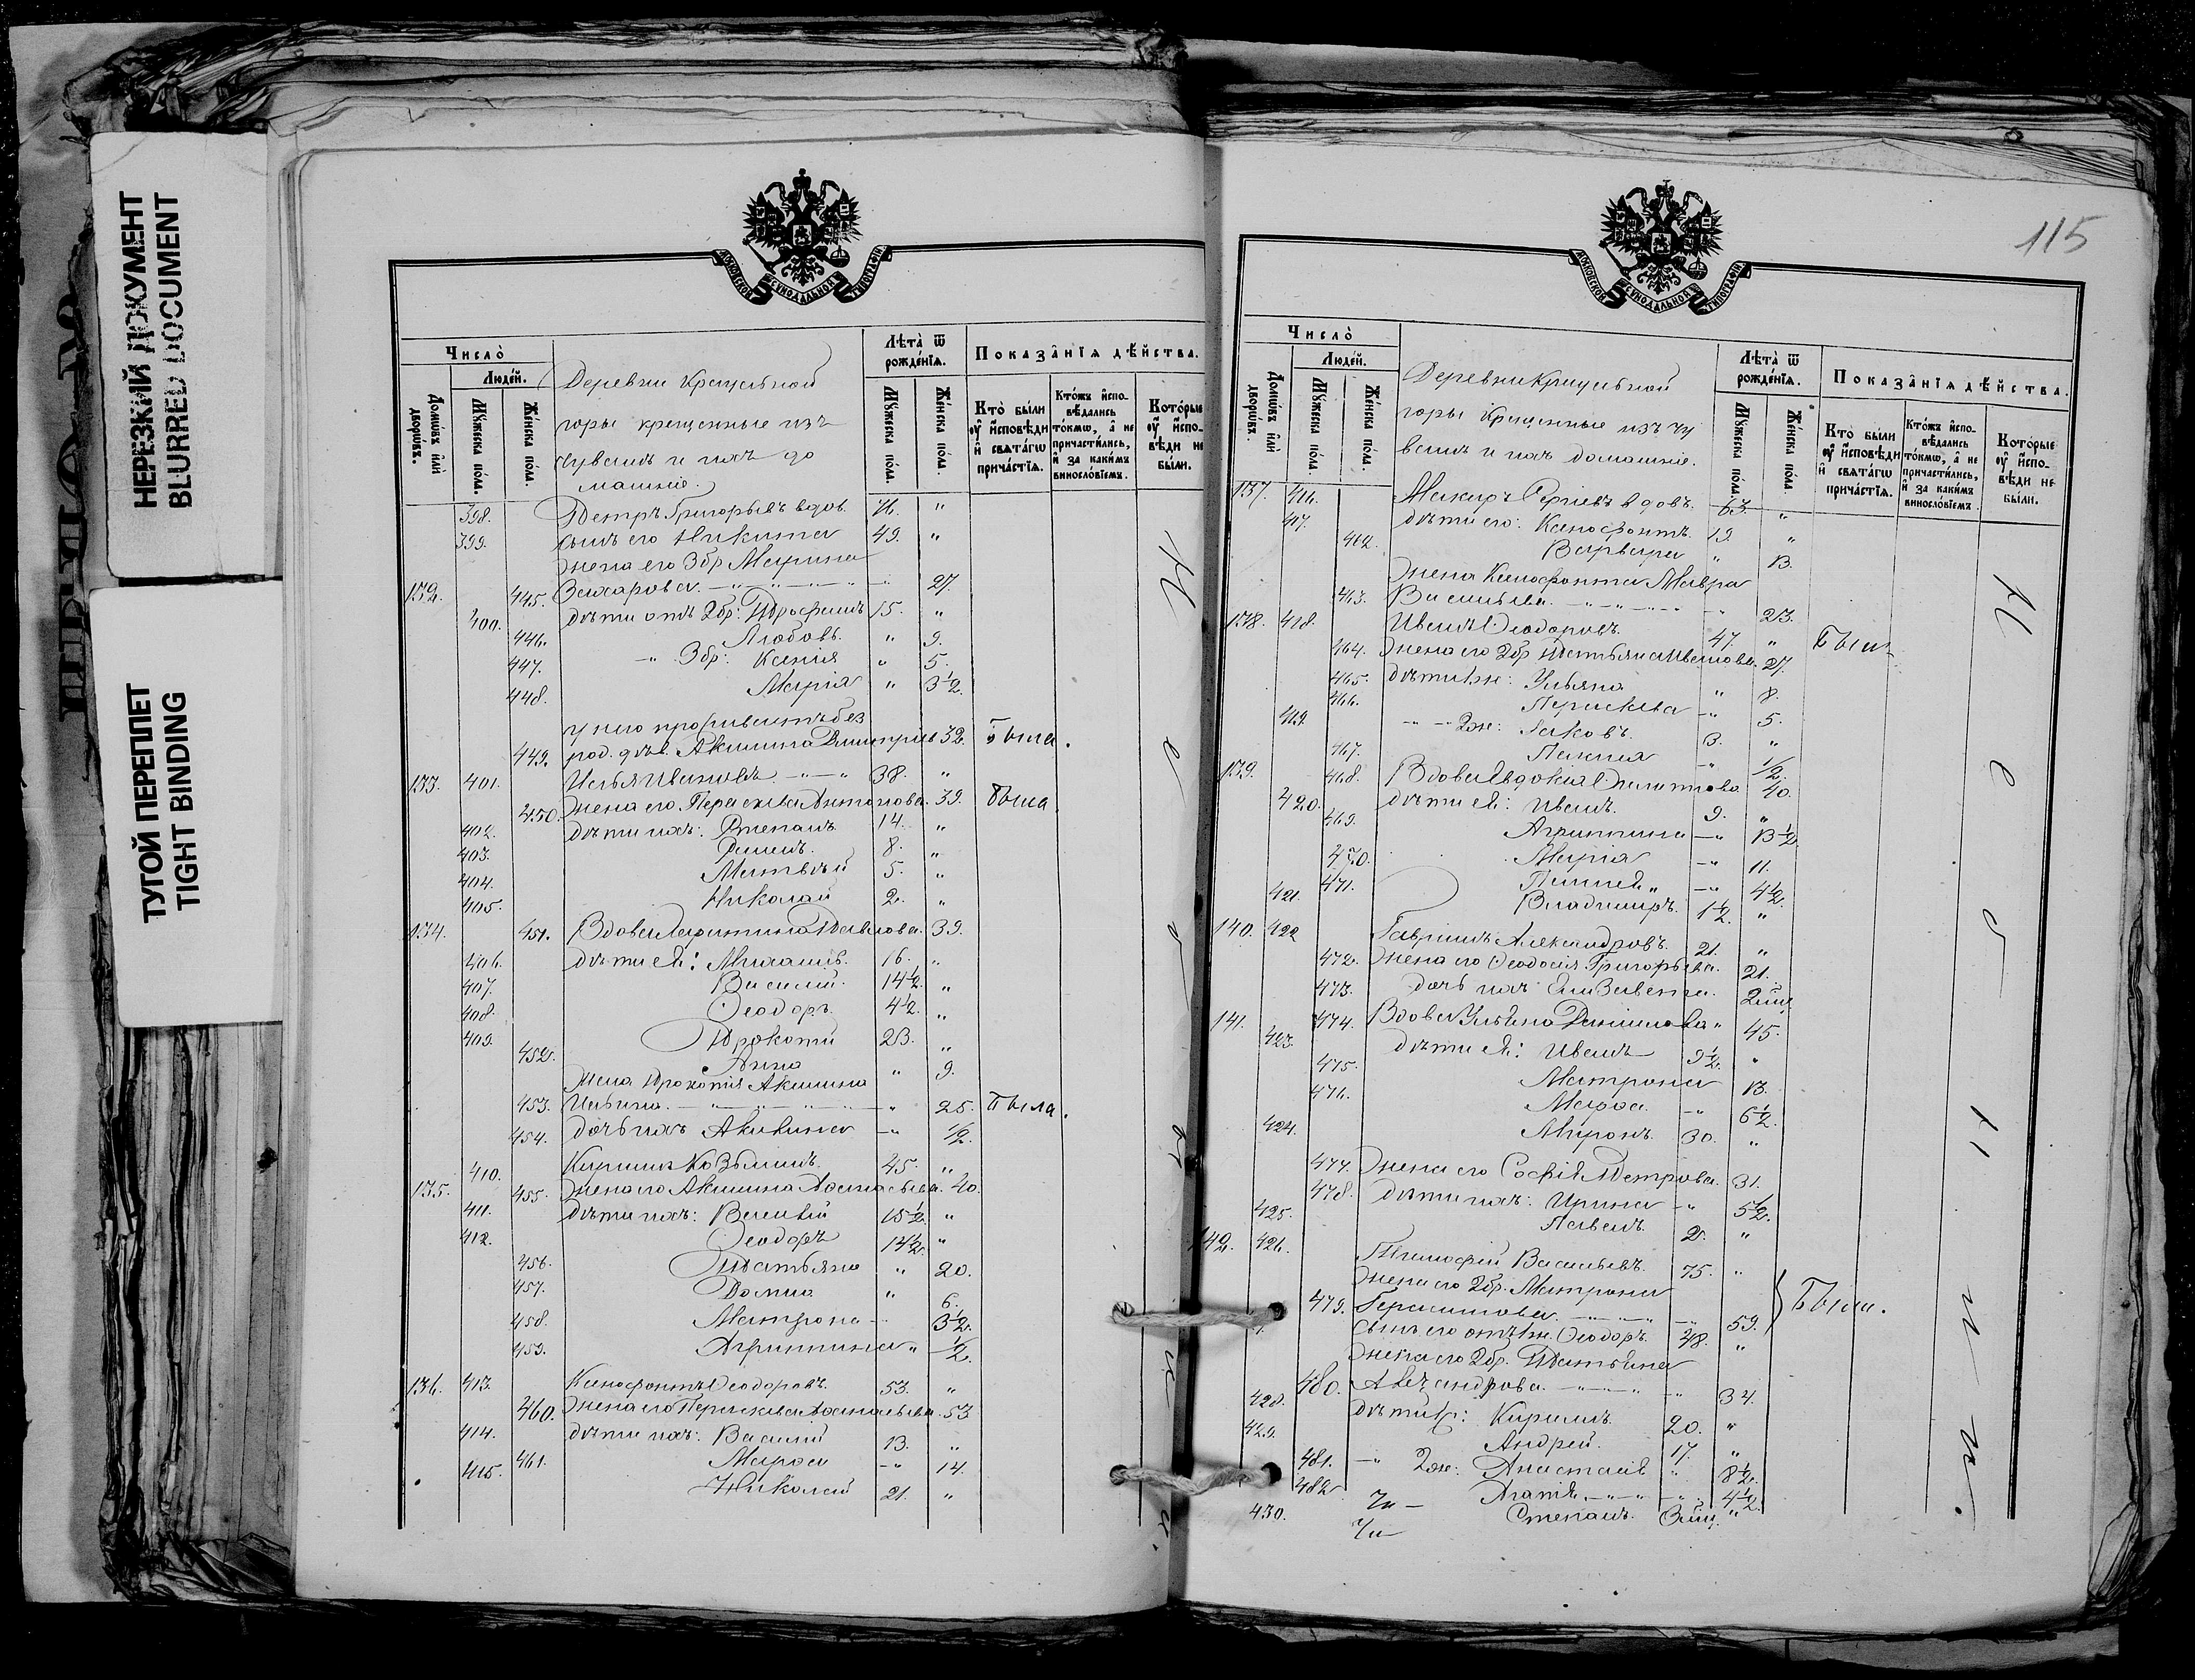 НЕРЕЗКИЙ ДОКУМЕНТ
BLURRED DOCUMENT
ТУГОЙ ПЕРЕПЛЕТ
TIGHT BINDING
МОСКОВСКОЙ СѴНОДАЛЬНОЙ ТИПОГРАФІИ
Число̀
Людéй.
Домѡ́въ и҆лѝ дворѡ́въ.
Мꙋ́жеска по́ла.
Же́нска по́ла.
Деревни Крещильной
горы крещенные изъ
чувашъ и ихъ до
машніе.
Лѣ́та ѿ рожде́нїѧ.
Мꙋ́жеска по́ла.
Же́нска по́ла.
Показа̂нїѧ дѣ́йства.
Кто̀ бы́ли ᲂу҆ и҆́сповѣди и҆ свѧта́гѡ прича́стїѧ.
Кто́жъ и҆спо- вѣ́дались то́кмѡ, а҆ не причасти́лись, и҆ за каки́мъ виносло́вїемъ.
Кото́рые ᲂу҆ и҆спо- вѣди не бы́ли.
398. Петръ Григорьевъ вдов. 71. "
399. сынъ его Никита 49. "
жена его 3 бр Марина
132. 445. Захарова. 27.
400. дѣти отъ 2 бр: 15. "
446. Любовь. " 9.
447. " 3 бр: Ксенія " 5.
448. Марія " 3½.
у него проживаетъ без
449. род. дѣв. Акилина Димитріев 32. Была.
133. 401. Илья Ивановъ 38. "
450. Жена его Параскева Антонова. 39. Была
402. дѣти ихъ: Степанъ 14. "
403. 8. "
404. Матвѣй 5. "
405. Николай 2. "
134. 451. Вдова Харитина Павлова. 39.
406. дѣти ея: Михаилъ. 16. "
407. Василій. 14½. "
408. Ѳеодоръ 4½. "
409. Прокопій 23. "
452. Анна " 9.
Жена Прокопія Акилина
453. Ильина. " 25. Была.
454. дочь ихъ Акилина " ½.
410. Кирилъ Козьминъ. 45. "
135. 455. Жена его Акилина Аѳанасьева. 40.
411. дѣти ихъ: Василій 15½. "
412. Ѳеодоръ 14½. "
456. Татьяна " 20.
457. Домна " 6.
458. Матрона 3½.
459. Агриппина " ½.
136. 413. Ксенофонтъ Ѳеодоровъ. 53. "
460. Жена его Параскева Аѳанасьева. 53
414. дѣти ихъ: Василій 13. "
461. Марѳа " 14.
415. Николай 21. "
115
МОСКОВСКОЙ СѴНОДАЛЬНОЙ ТИПОГРАФІИ
Число̀
Людéй.
Домѡ́въ и҆лѝ дворѡ́въ.
Мꙋ́жеска по́ла.
Же́нска по́ла.
Деревни Крещильной
горы Крещенные изъ чу
вашъ и ихъ домашніе.
Лѣ́та ѿ рожде́нїѧ.
Мꙋ́жеска по́ла.
Же́нска по́ла.
Показа̂нїѧ дѣ́йства.
Кто̀ бы́ли ᲂу҆ и҆́сповѣди и҆ свѧта́гѡ прича́стїѧ.
Кто́жъ и҆спо- вѣ́дались то́кмѡ, а҆ не причасти́лись, и҆ за каки́мъ виносло́вїемъ.
Кото́рые ᲂу҆ и҆спо- вѣди не бы́ли.
137. 416. Макаръ Сергіевъ вдовъ. 63. "
417. дѣти его: Ксенофонтъ. 19. "
462. Варвара " 13.
Жена Ксенофонта Мавра
463. Васильева. 23.
138. 418. Иванъ Ѳеодоровъ. 47. " Были
464. Жена его 2 бр Татьяна Иванова. 27.
465. дѣти 1 ж: Ульяна " 8.
466. Параскева " 5.
419. " 2 ж: Іаковъ. 3. "
467. " ½.
139. 468. Вдова Евдокія Филиппова 40.
420. дѣти ея: Иванъ. 9. "
469. Агриппина " 13½
470. Марія " 11.
471. " 4½.
421. Владимиръ. 1½. "
140. 422 Гавріилъ Александровъ. 21. "
472. Жена его Ѳеодосія Григорьева. 21.
473. дочь ихъ Елизавета.
141. 474. Вдова Ульяна Данилова " 45.
423. дѣти ея: Иванъ 9½. "
475. Матрона 13.
476. Марѳа. " 6½.
424. Миронъ. 30. "
477. Жена его Софія Петрова. 31.
478. дѣти ихъ: Ирина " 5½.
425. Павелъ. 2. "
142. 426. Тимофей Васильевъ. 75. "
Жена его 2 бр. Матрона
479. Герасимова. 59. Были.
сынъ его отъ 1 ж. Ѳеодоръ. 48. "
Жена его 2 бр. Татьяна
480. Александрова. 34.
428. дѣти 1: Кирилъ. 20. "
429. Андрей. 17. "
481. " 2 ж: Анастасія " 8½.
482 Агаѳія " 4½.
430. Степанъ. "